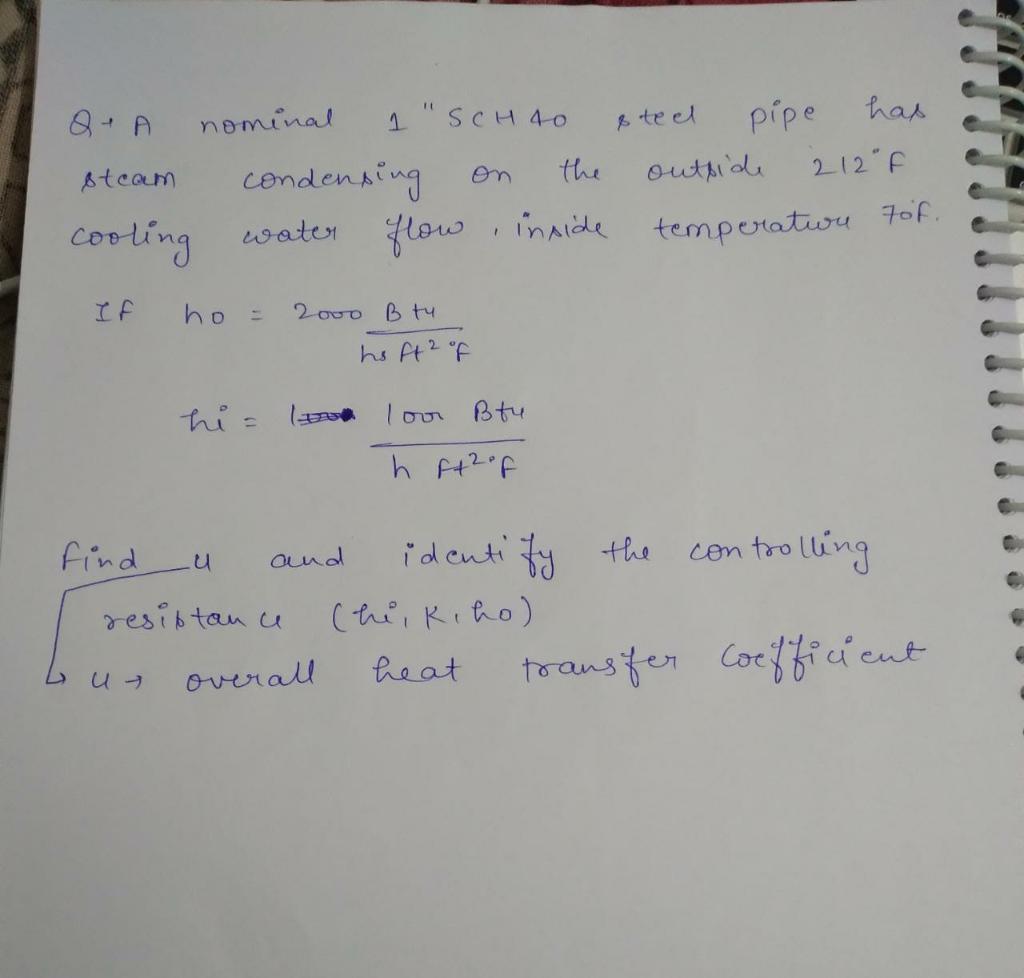 Q→ A nominal 1" SCH 40 steel pipe has
steam condensing on the outside 212°F
cooling water flow, inside temperature 70°F.
If ho = 2000 Btu
hr ft² °F
hi = 1000 Btu
h ft² °F
find u and identify the controlling
resistance (hi, K, ho)
↳ u → overall heat transfer coefficient